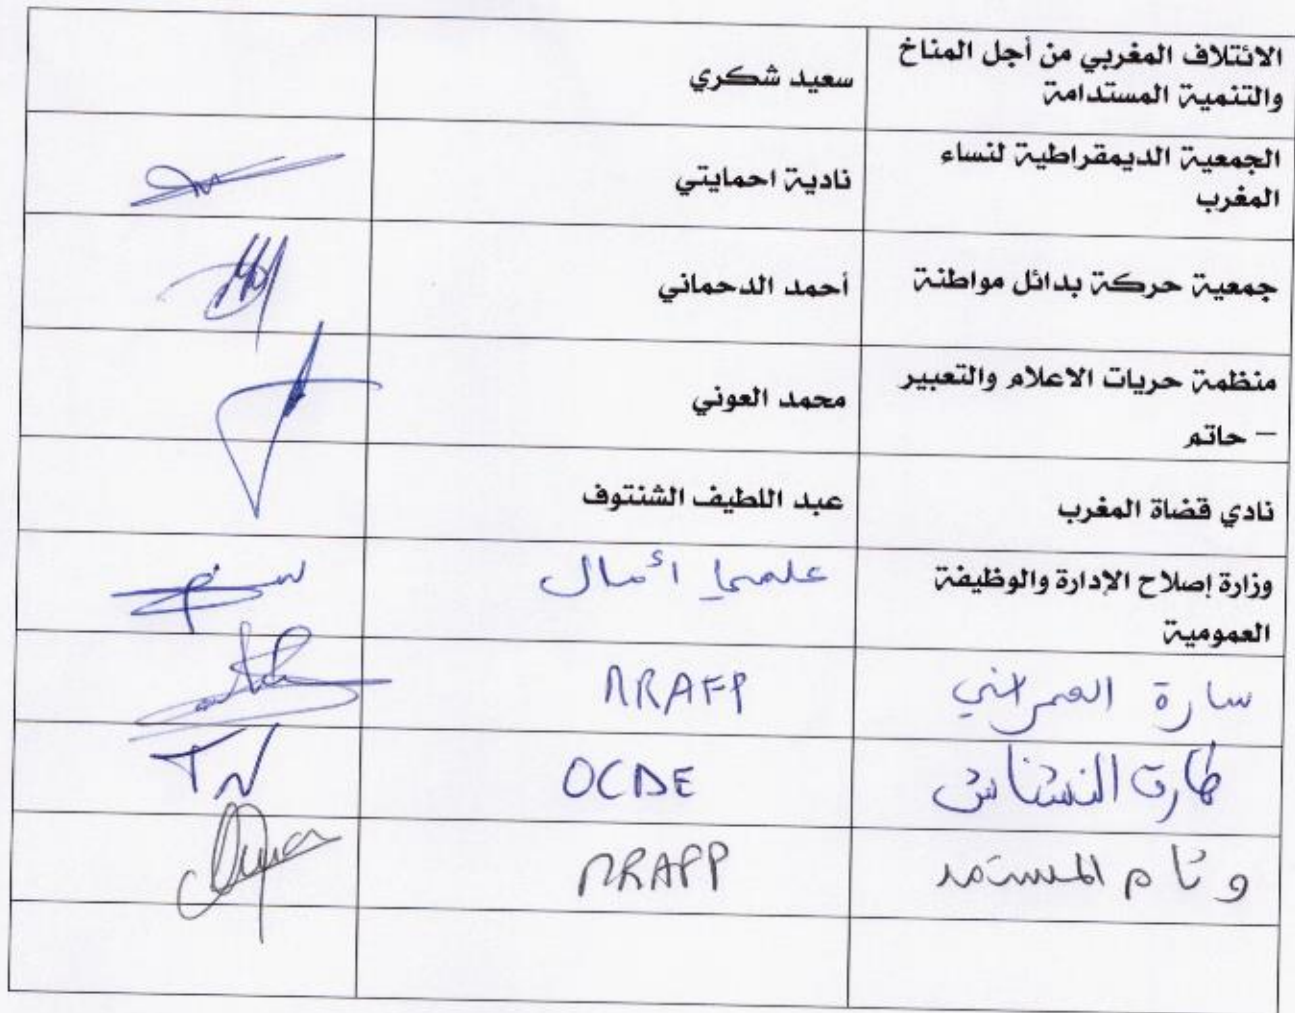 الائتلاف المغربي من أجل المناخ
والتنمية المستدامة
سعيد شكري
الجمعية الديمقراطية لنساء
المغرب
نادية احمايتي
جمعية حركة بدائل مواطنة
أحمد الدحماني
منظمة حريات الاعلام والتعبير
– حاتم
محمد العوني
نادي قضاة المغرب
عبد اللطيف الشنتوف
وزارة إصلاح الإدارة والوظيفة
العمومية
علمي أمال
سارة العمراني
MRAFP
طارق النشناش
OCDE
TN
وئام